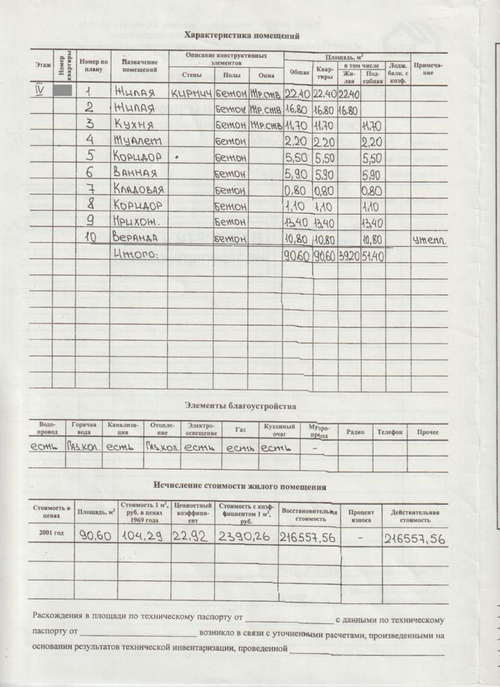 Характеристика помещений
Этаж Номер квартиры Номер по плану Назначение помещений Описание конструктивных элементов Площадь, м² Лодж. балк. с коэф. Примечание
Стены Полы Окна Общие Квартиры в том числе
Жилая Подсобная
IV 1 Жилая кирпич бетон тр.ств 22.40 22.40 22.40
2 Жилая бетон тр.ств 16.80 16.80 16.80
3 Кухня бетон тр.ств 11,70 11,70 11,70
4 Туалет бетон 2,20 2.20 2.20
5 Коридор бетон 5,50 5,50 5,50
6 Ванная бетон 5,90 5,90 5.90
7 Кладовая бетон 0,80 0,80 0.80
8 Коридор бетон 1,10 1,10 1.10
9 Прихож. бетон 13,40 13,40 13.40
10 Веранда бетон 10,80 10,80 10,80 утепл.
Итого: 90.60 90,60 39.20 51.40
Элементы благоустройства
Водопровод Горячая вода Канализация Отопление Электроосвещение Газ Кухонный очаг Мусоропровод Радио Телефон Прочее
есть газ.кол. есть газ.кол. есть есть есть -
Исчисление стоимости жилого помещения
Стоимость в ценах Площадь, м² Стоимость 1 м², руб. в ценах 1969 года Ценностный коэффициент Стоимость с коэффициентом 1 м², руб. Восстановительная стоимость Процент износа Действительная стоимость
2001 год 90,60 104,29 22,92 2390,26 216557,56 - 216557,56
Расхождения в площади по техническому паспорту от с данными по техническому
паспорту от возникло в связи с уточненными расчетами, произведенными на
основании результатов технической инвентаризации, проведенной